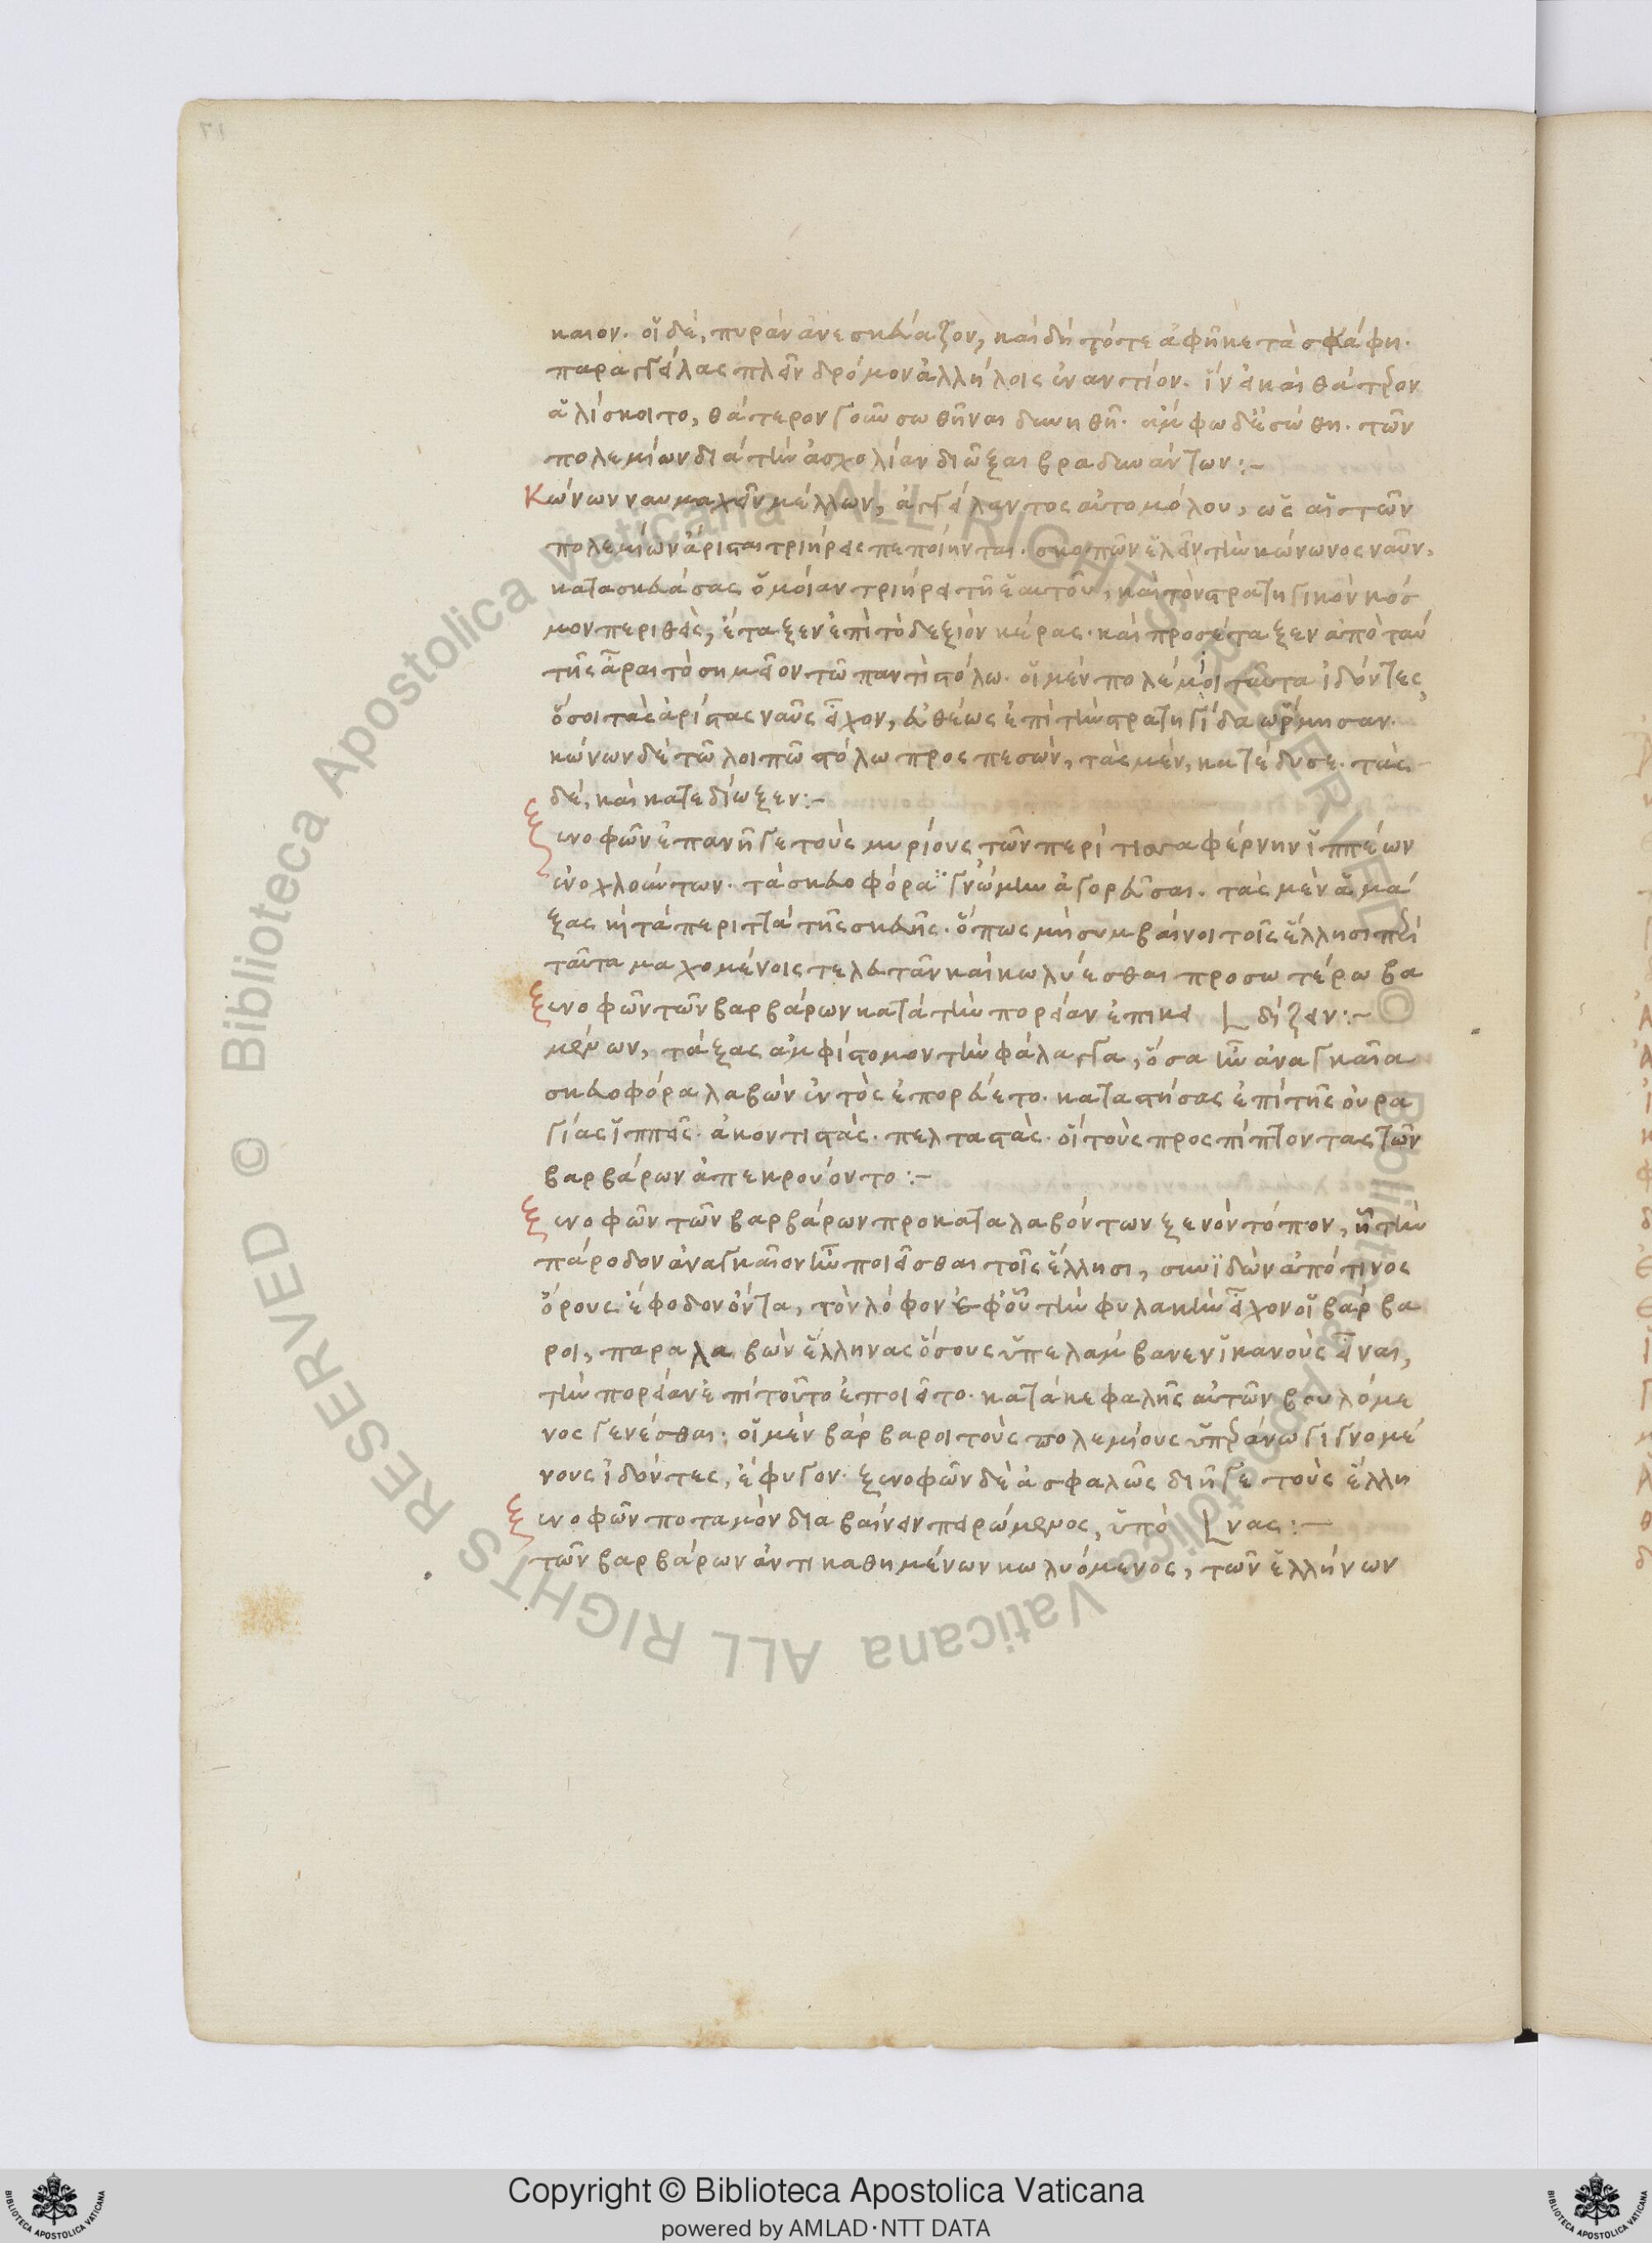 καιον. οἱ δὲ, πυρὰν ἀνεσκεύαζον, καὶ δὴ τότε ἀφῆκε τὰ σκάφη.
παραγγείλας πλεῖν δρόμον ἀλλήλοις ἐναντίον. ἵν' εἰ καὶ θάτερον
ἁλίσκοιτο, θάτερον γοῦν σωθῆναι δυνηθῆ. ἄμφω δὲ ἐσώθη. τῶν
πολεμίων διὰ τὴν ἀσχολίαν διῶξαι βραδυνάντων:-
Κώνων ναυμαχεῖν μέλλων, ἀγγείλαντος αὐτομόλου, ὡς αἱ τῶν
πολεμίων ἄρισται τριήρεις πεποίηνται. σκοπῶν ἑλεῖν τὴν κώνωνος ναῦν.
κατασκευάσας ὁμοίαν τριήρει τῆ ἑαυτοῦ, καὶ τὸν στρατηγικὸν κόσ
μον περιθεὶς, ἔταξεν ἐπὶ τὸ δεξιὸν κέρας. καὶ προσέταξεν ἀπὸ ταύ
της ἆραι τὸ σημεῖον τῶ παντὶ στόλω. οἱ μὲν πολέμιοι ταῦτα ἰδόντες,
ὅσοι τὰς ἀρίστας ναῦς εἶχον, εὐθέως ἐπὶ τὴν στρατηγίδα ὥρμησαν.
κώνων δὲ τῶ λοιπῶ στόλω προσπεσὼν, τὰς μὲν, κατέδυσε. τὰς
δὲ, καὶ κατεδίωξεν:-
ξενοφῶν ἐπανῆγε τοὺς μυρίους τῶν περὶ τισσαφέρνην ἱππέων
ἐνοχλούντων. τὰ σκευοφόρα γνώμην ἀγορεῦσαι. τὰς μὲν ἁμά
ξας καὶ τὰ περιττὰ τῆς σκευῆς. ὅπως μὴ συμβαίνοι τοῖς ἕλλησι περὶ
ταῦτα μαχομένοις τελευτᾶν καὶ κωλύεσθαι προσωτέρω βα
ξενοφῶν τῶν βαρβάρων κατὰ τὴν πορείαν ἐπικει [δίζειν:-
μένων, τάξας ἀμφίστομον τὴν φάλαγγα, ὅσα ἦν ἀναγκαῖα
σκευοφόρα λαβὼν ἐντὸς ἐπορεύετο. καταστήσας ἐπὶ τῆς οὐρα
γίας ἱππεῖς. ἀκοντιστὰς. πελταστὰς. οἳ τοὺς προσπίπτοντας τῶν
βαρβάρων ἀπεκρούοντο:-
ξενοφῶν τῶν βαρβάρων προκαταλαβόντων ξενὸν τόπον, ἧ τὴν
πάροδον ἀναγκαῖον ἦν ποιεῖσθαι τοῖς ἕλλησι, συνϊδὼν ἀπό τινος
ὄρους ἔφοδον ὄντα, τὸν λόφον ἐφ' οὗ τὴν φυλακὴν εἶχον οἱ βάρβα
ροι, παραλαβὼν ἕλληνας ὅσους ὑπελάμβανεν ἱκανοὺς εἶναι,
τὴν πορείαν ἐπὶ τοῦτο ἐποιεῖτο. κατὰ κεφαλῆς αὐτῶν βουλόμε
νος γενέσθαι. οἱ μὲν βάρβαροι τοὺς πολεμίους ὑπεράνω γιγνομέ
νους ἰδόντες, ἔφυγον. ξενοφῶν δὲ ἀσφαλῶς διῆγε τοὺς ἕλλη
ξενοφῶν ποταμὸν διαβαίνειν πειρώμενος, ὑπὸ [νας:-
τῶν βαρβάρων ἀντικαθημένων κωλυόμενος, τῶν ἑλλήνων
© Biblioteca Apostolica Vaticana ALL RIGHTS RESERVED © Biblioteca Apostolica Vaticana ALL RIGHTS RESERVED
Copyright © Biblioteca Apostolica Vaticana
powered by AMLAD·NTT DATA